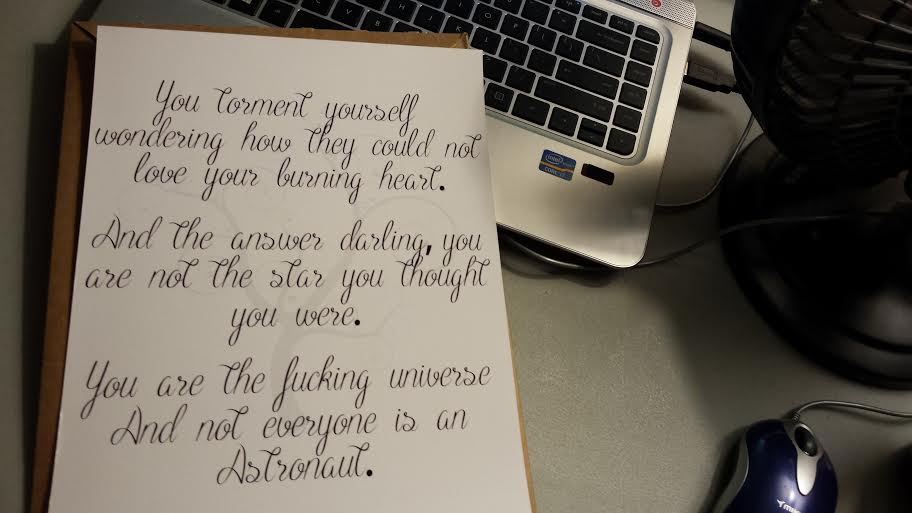 You torment yourself
wondering how they could not
love your burning heart.
And the answer darling, you
are not the star you thought
you were.
You are the fucking universe
And not everyone is an
Astronaut.
intel
CORE i3